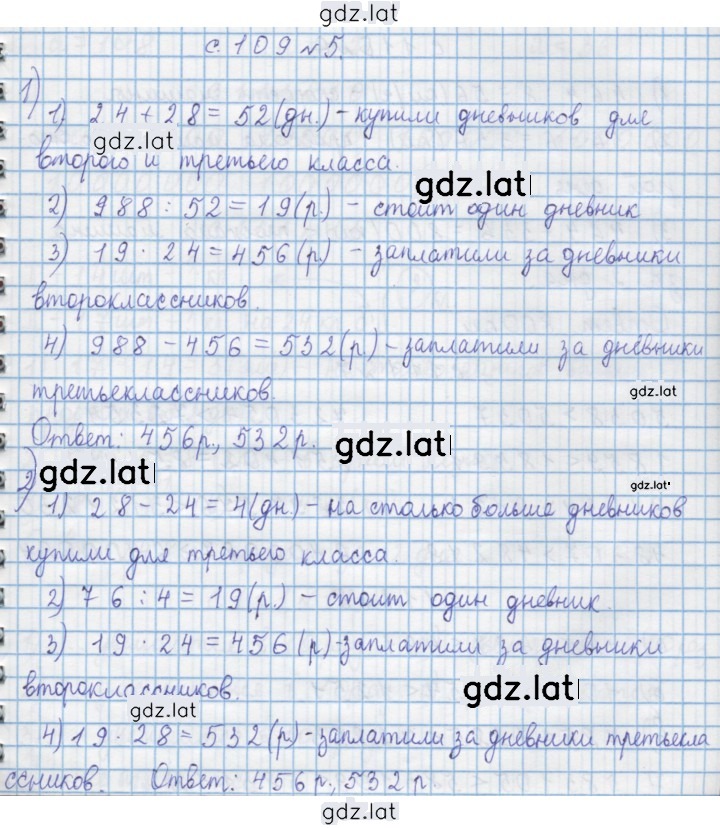 gdz.lat
с. 109 №5.
1)
1) 24 + 28 = 52 (дн.) - купили дневников для
gdz.lat
второго и третьего класса.
gdz.lat
2) 988 : 52 = 19 (р.) - стоит один дневник
3) 19 · 24 = 456 (р) - заплатили за дневники
второклассников.
4) 988 - 456 = 532 (р) - заплатили за дневники
третьеклассников.
gdz.lat
Ответ: 456 р., 532 р.
gdz.lat
2)
gdz.lat
gdz.lat
1) 28 - 24 = 4 (дн.) - на столько больше дневников
купили для третьего класса.
2) 76 : 4 = 19 (р.) - стоит один дневник.
3) 19 · 24 = 456 (р) - заплатили за дневники
второклассников.
gdz.lat
gdz.lat
4) 19 · 28 = 532 (р) - заплатили за дневники третьекла
ссников. Ответ: 456 р., 532 р.
gdz.lat